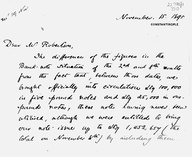 November, 15. 1890
CONSTANTINOPLE
Dear Mr Robertson,
The difference of the figures in the
Bank-note situation of the 2nd and 8th months
from the fact that, between those dates, we
brought officially into circulation
in five pound notes and
pounds notes, these notes having never been
utilised, although we were entitled to bring
our note issue up to
total in November 8th) by including them